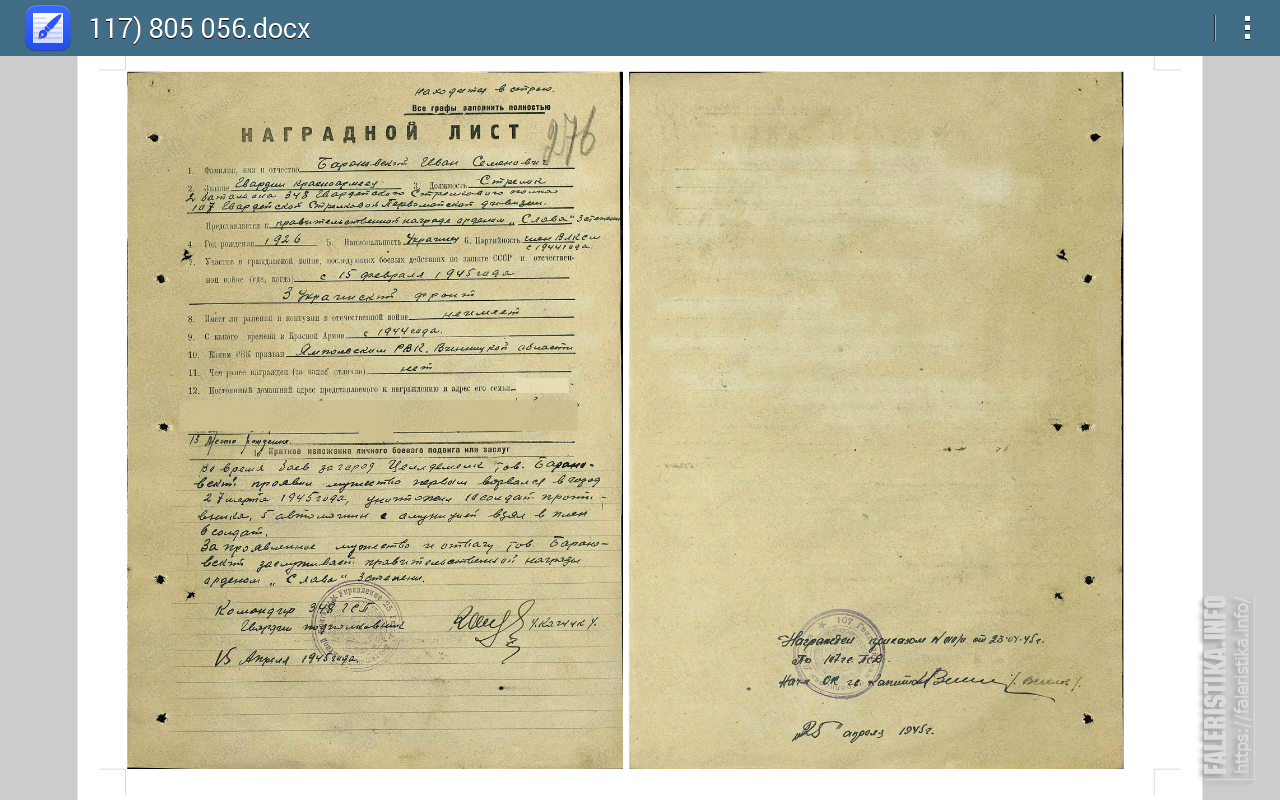 117) 805 056.docx
находится в строю.
Все графы заполнять полностью
НАГРАДНОЙ ЛИСТ
276
1. Фамилия, имя и отчество Барановский Иван Семенович
2. Звание Гвардии красноармеец 3. Должность Стрелок
2 батальона 348 Гвардейского Стрелкового полка
107 Гвардейской Стрелковой Первомайской дивизии.
Представляется к правительственной награде орденом „Слава" 3 степени
4. Год рождения 1926 5. Национальность Украинец 6. Партийность член ВЛКСМ
с 1944 года.
7. Участие в гражданской войне, последующих боевых действиях по защите СССР и отечествен-
ной войне (где, когда) с 15 февраля 1945 года
3 Украинский фронт
8. Имеет ли ранения и контузии в отечественной войне неимеет
9. С какого времени в Красной Армии с 1944 года.
10. Каким РВК призван Ямпольским РВК. Винницкой области
11. Чем ранее награжден (за какие отличия) нет
12. Постоянный домашний адрес представляемого к награждению и адрес его семьи
13 Место рождения.
Краткое изложение личного боевого подвига или заслуг
Во время боев за город Целлдемелк тов. Барано-
вский проявил мужество первым ворвался в город
27 марта 1945 года, уничтожил 10 солдат проти-
вника, 5 автомашин с амуницией взял в плен
6 солдат.
За проявленное мужество и отвагу тов. Барано-
вский заслуживает правительственной награды
орденом „Слава" 3 степени.
Командир 348 ГСП
Гвардии подполковник
15 Апреля 1945 года.
Награжден приказом № от 23.04.45г.
По 107 гв.
Нач. ОК гв. капитан
„25" апреля 1945г.
FALERISTIKA.INFO
https://faleristika.info/